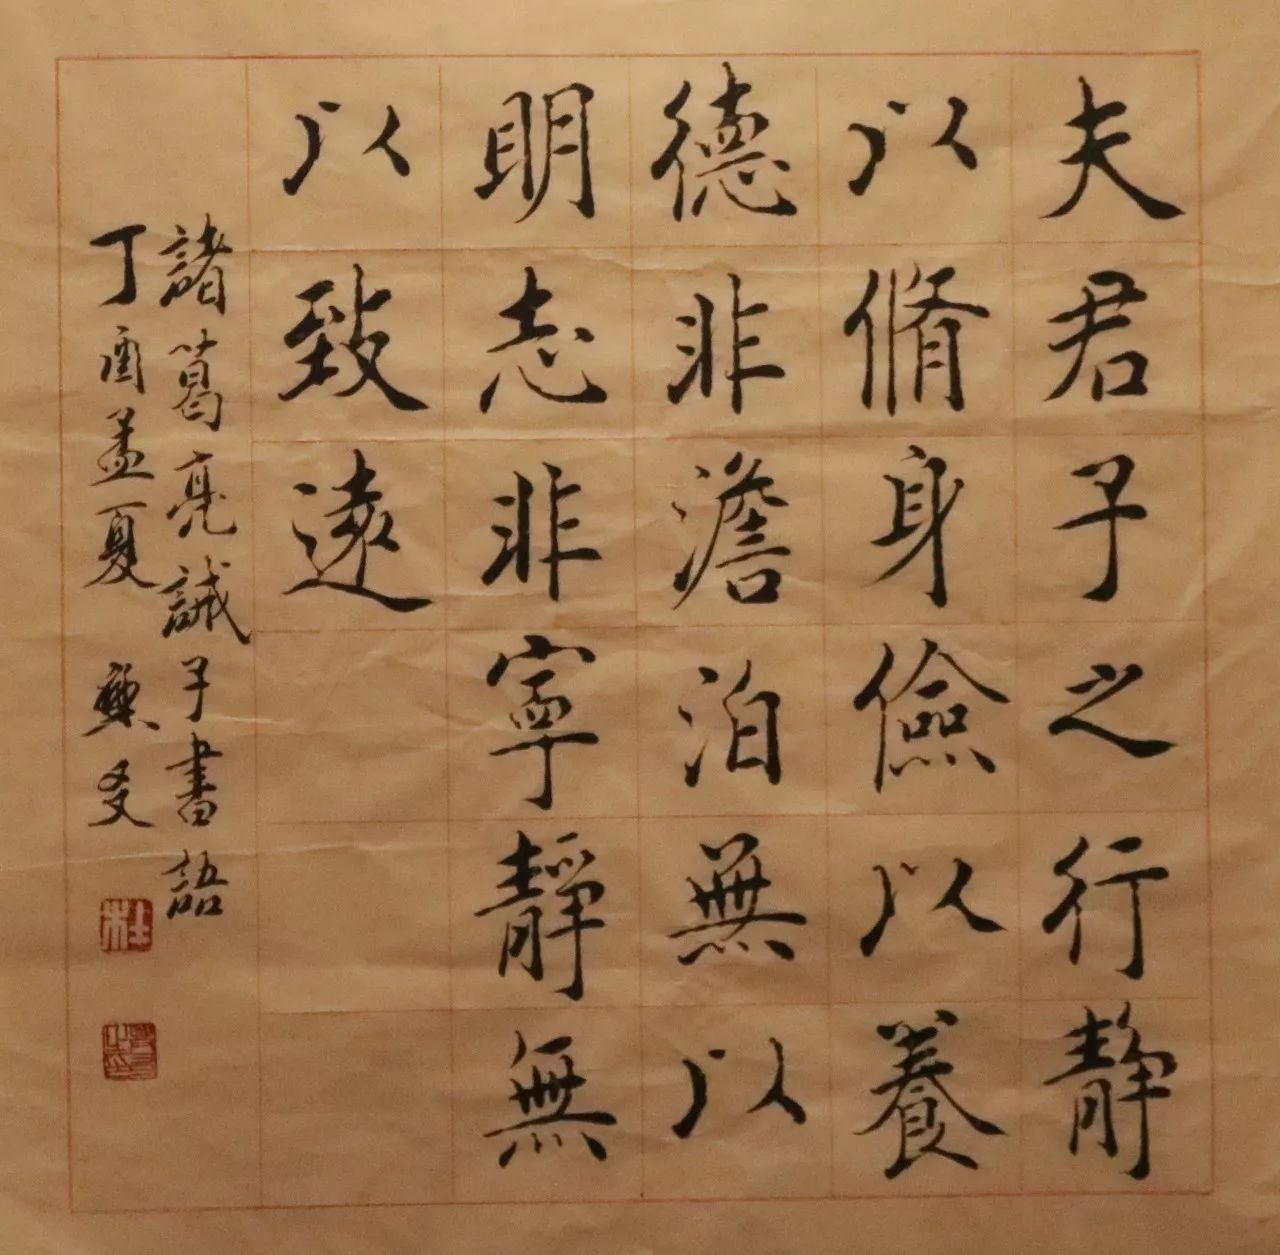 夫君子之行靜
以脩身儉以養
德非澹泊無以
明志非寧靜無
以致遠
諸葛亮誡子書語
丁酉孟夏
杜